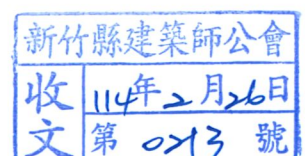 新竹縣建築師公會
收文
114年2月26日
第 0213 號